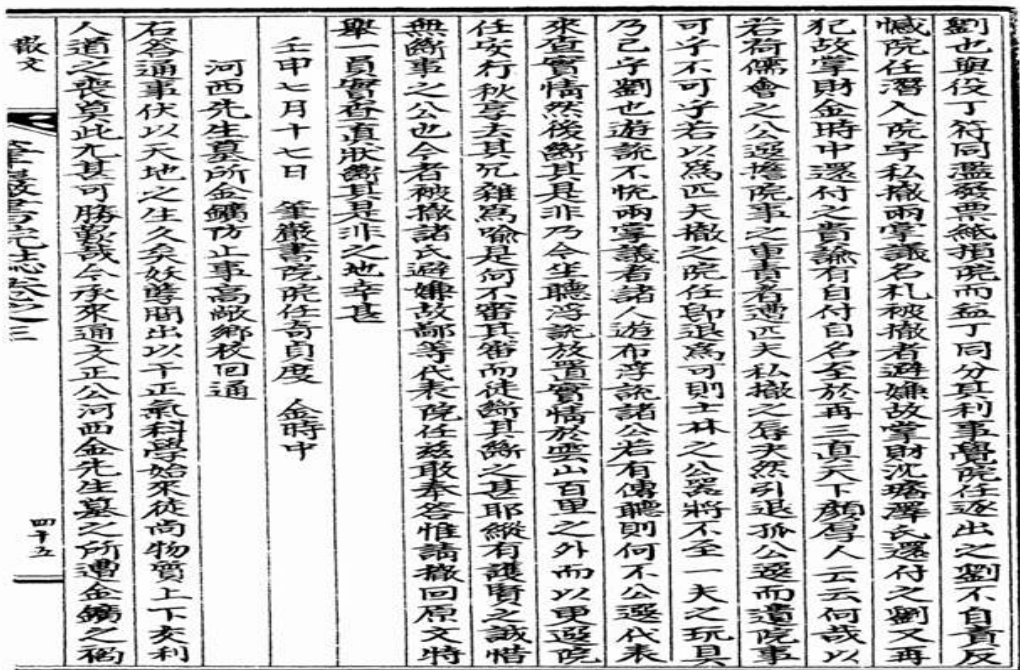 劉也與役丁符同濫發票紙損院而盃丁同分其利事覺院任逐出之劉不自責反
憾院任潛入院宇私撤兩掌議名札被撤者避嫌故掌財沈璿澤氏還付之劉又再
犯故掌財金時中還付之貴諭有自付自名至於再三眞天下顔厚人云云何哉以
若荷儒會之公選擔院事之重責者遭匹夫私撤之辱夬然引退孤公選而遺院事
可乎不可乎若以爲匹夫撤之院任卽退爲可則士林之公器將不至一夫之玩具
乃已乎劉也遊說不悅兩掌議者諸人遊布浮說諸公若有傳聽則何不公選代表
來査實情然後斷其是非乃今坐聽浮說放置實情於雲山百里之外而以更選院
任安行秋享去其冗雜爲喩是何不審其審而徒斷其斷之甚耶縱有護賢之誠惜
無斷事之公也今者被撤諸氏避嫌故鄙等代表院任玆敢奉答惟請撤回原文特
擧一員實査眞狀斷其是非之地幸甚
壬申七月十七日 筆巖書院院任奇貞度 金時中
河西先生墓所金鑛防止事高敞鄕校回通
右答通事伏以天地之生久矣妖孼間出以干正氣科學始來從尚物質上下交利
人道之喪莫此尤甚可勝歎哉今承來通文正公河西金先生墓之所遭金鑛之禍
散文
筆巖書院誌卷之三
四十五